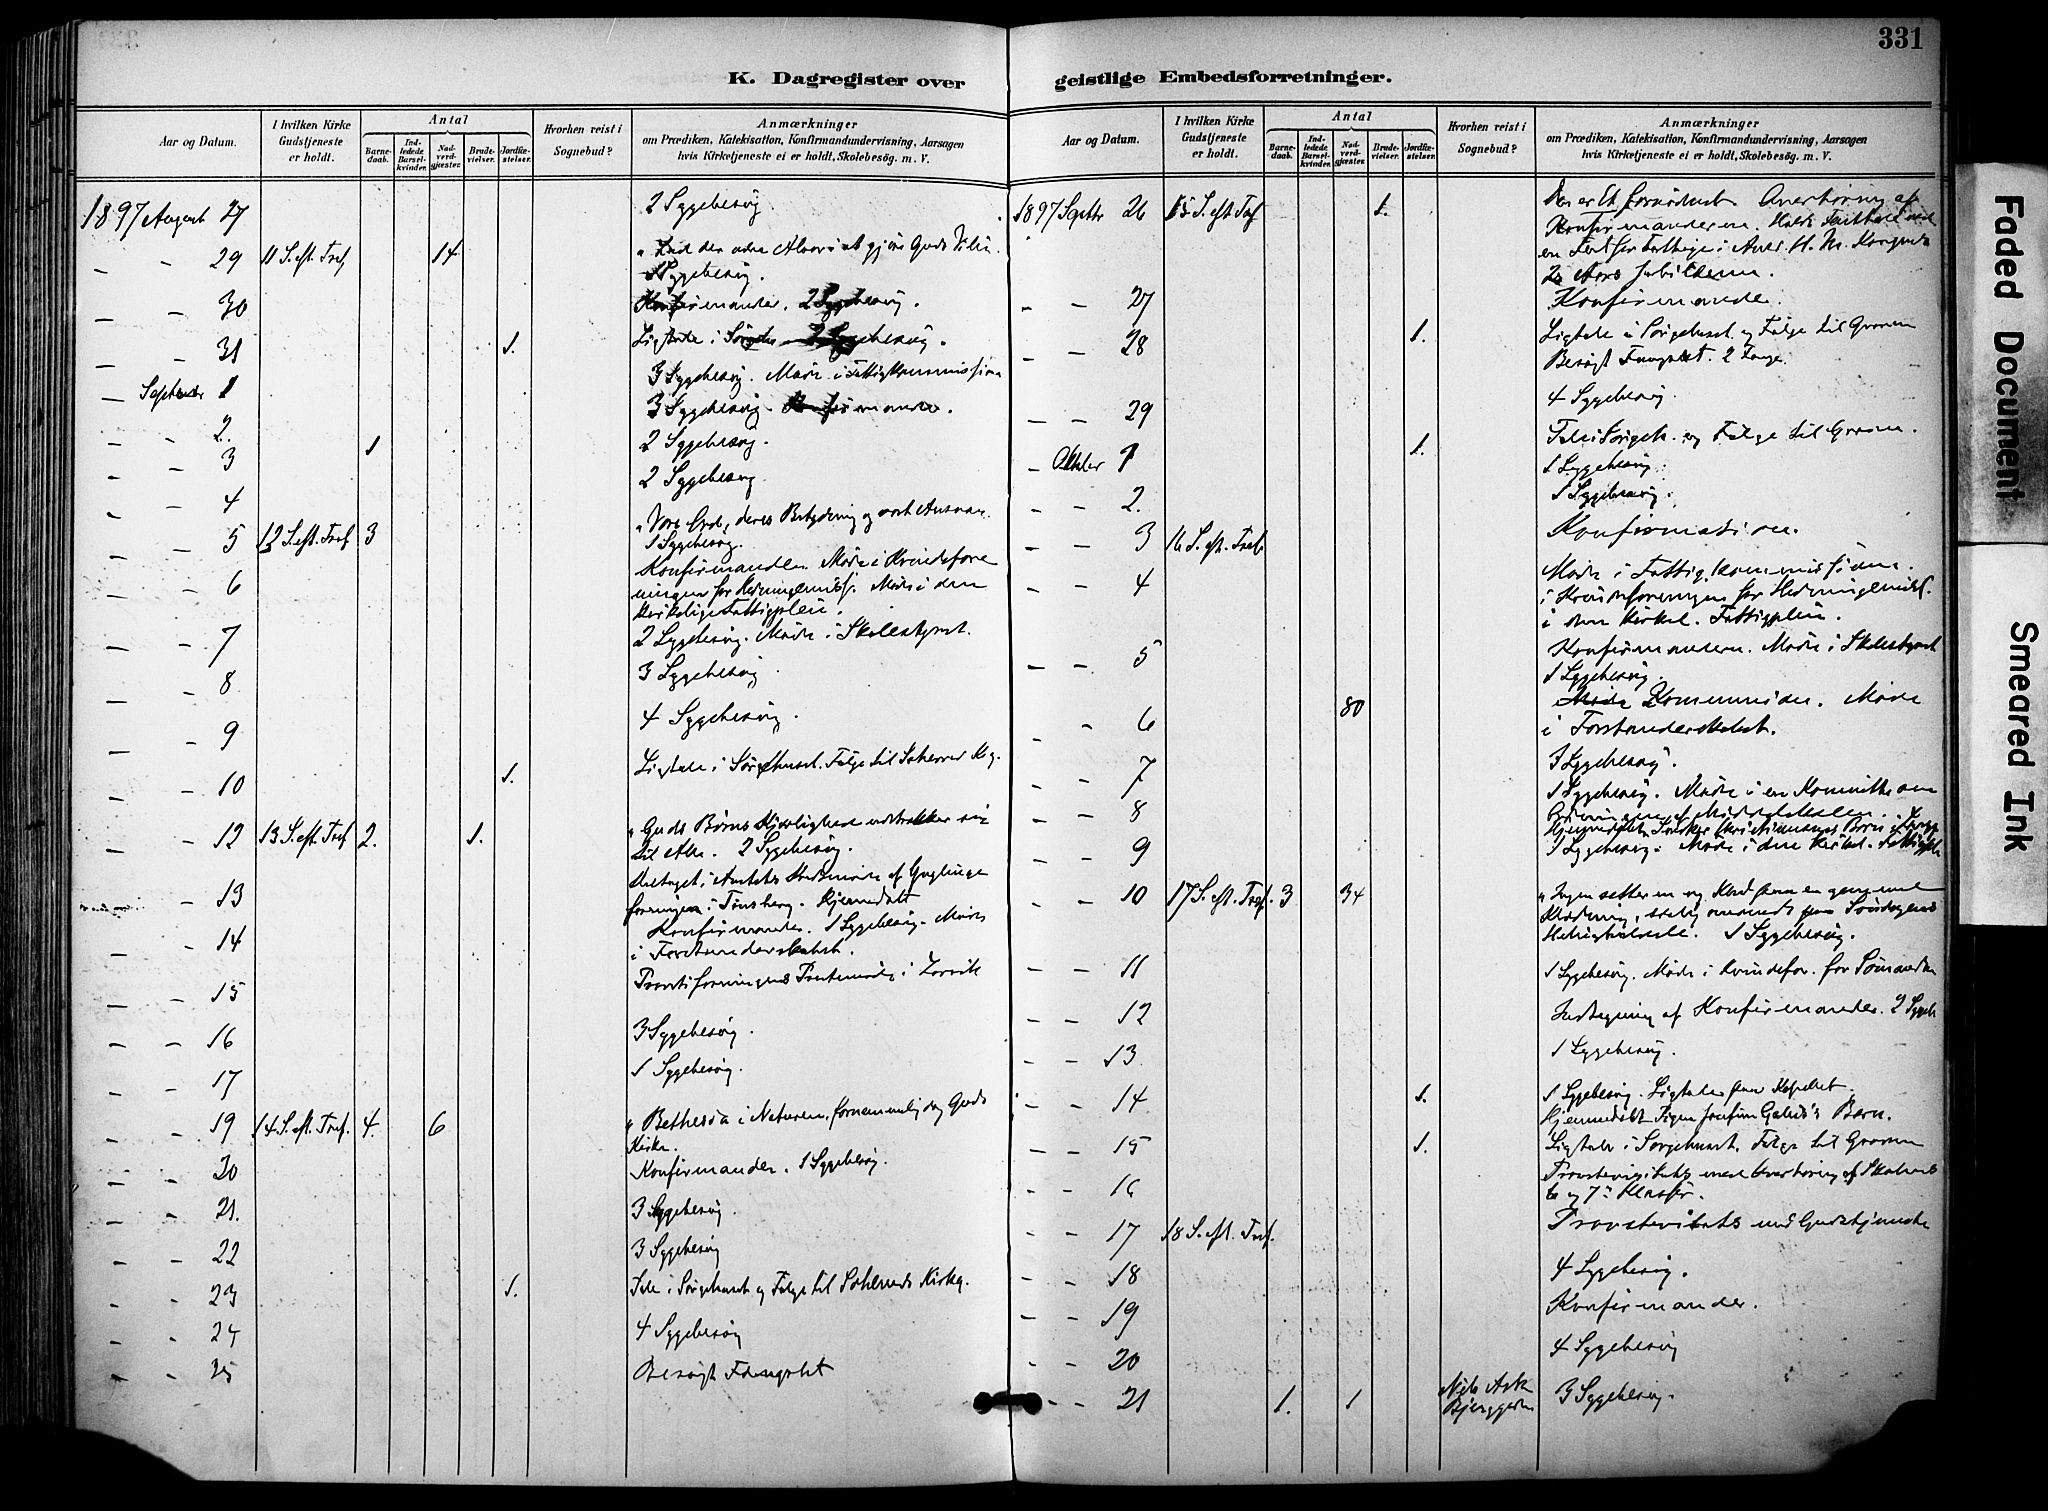 331
K. Dagregister over
geistlige Embedsforretninger.
Aar og Datum.
I hvilken Kirke
Gudstjeneste
er holdt.
Antal
Barne-
daab.
Ind-
ledede
Barsel-
kvinder.
Nad-
verd-
gjæster.
Brude-
vielser.
Jordfæ-
stelser.
Hvorhen reist i
Sognebud?
Anmærkninger
om Prædiken, Katekisation, Konfirmandundervisning, Aarsagen
hvis Kirketjeneste ei er holdt, Skolebesøg. m. V.
1897 August 27 2 Sygebesøg
- - 29 11 S. eft. Tref 14 at gjøre Guds Vilie.
Sygebesøg.
- - 30 Konfirmander. 2 Sygebesøg.
- 31 1. Ligtale i
3 Sygebesøg. Møde i Fattigkommissionen
- September 1 3 Sygebesøg. Konfirmander.
- - 2. 1 2 Sygebesøg.
- - 3 2 Sygebesøg
- - 4
" Vore Ord, deres Betydning og vort Ansvar.
- - 5 12 S. eft. Tref 3 1 Sygebesøg.
- - 6 Konfirmander. Møde i Kvindefore
ningen for Hedningemiss. Møde i den
kirkelige Fattigpleie.
- - 7 2 Sygebesøg. Møde i Skolestyret.
- - 8 3 Sygebesøg
- - 9 4 Sygebesøg.
- - 10 1. Ligtale i Sørgehuset. Følge til Kg.
- - 12 13 S. eft. Tref 2. 1. " Guds Børns Kjærlighed udstrækker sig
til Alle. 2 Sygebesøg.
- - 13 Deltaget i af Ynglinge
foreningen i Tønsberg. Hjemmedøbt
- - 14 Konfirmander. 1 Sygebesøg. Møde
i Forstanderskabet.
- - 15 i Larvik
- - 16 3 Sygebesøg.
- - 17 1 Sygebesøg.
- - 19 14 S. eft. Tref. 4. 6 " Bethesda i Naturen, fornemmelig dog Guds
Kirke.
- - 20 Konfirmander. 1 Sygebesøg.
- - 21. 3 Sygebesøg.
- - 22 3 Sygebesøg
- - 23 1. Tale i Sørgehuset og Følge til Kirkeg.
- - 24 4 Sygebesøg
- - 25 Besøgt Fængslet
Aar og Datum.
I hvilken Kirke
Gudstjeneste
er holdt.
Antal
Barne-
daab.
Ind-
ledede
Barsel-
kvinder.
Nad-
verd-
gjæster.
Brude-
vielser.
Jordfæ-
stelser.
Hvorhen reist i
Sognebud?
Anmærkninger
om Prædiken, Katekisation, Konfirmandundervisning, Aarsagen
hvis Kirketjeneste ei er holdt, Skolebesøg. m. V.
1897 Septbr 26 15 S. eft Tref 1. Den er Et fornødent. Overhøring af
Konfirmanderne. Holdt
en Fest for Fattige i Anl. H. M. Kongens
25 Aars Jubilæum.
- - 27 Konfirmander.
- - 28 1. Ligtale i Sørgehuset og Følge til Graven
Besøgt Fængslet. 2 Fange
- - 29 4 Sygebesøg
- Oktober 1 1. Tale i Sørgeh. og Følge til Graven.
1 Sygebesøg.
- - 2. 1 Sygebesøg.
- - 3 16 S. eft. Tref. Konfirmation.
- - 4 Møde i Fattigkommissionen.
i Kvindeforeningen for Hedningemiss.
i den Kirkel. Fattigpleie.
- - 5 Konfirmandern. Møde i Skolestyret
1 Sygebesøg.
- - 6 80 Kommunion. Møde
i Forstanderskabet.
- - 7 3 Sygebesøg.
- - 8 1 Sygebesøg. Møde i en Komitte om
Børn
- - 9 1 Sygebesøg. Møde i den Kirkel. Fattigple
- - 10 17 S. eft. Tref. 3 34 " Ingen sætter en ny Klud paa en gammel
Klædning, Søndagens
Helligholdelse. 1 Sygebesøg.
- - 11 1 Sygebesøg. Møde i Kvindefor. for Sømands
- - 12 Indtegning af Konfirmander. 2 Sygeb
- - 13 1 Sygebesøg.
- - 14 1. 1 Sygebesøg. Ligtale paa Kapellet.
Hjemmedøbt Pigen Josefine Barn.
- - 15 1. Ligtale i Sørgehuset. Følge til Graven
- - 16 Provstevisitats med Overhøring af Skolens
6 og 7de Klasse.
- - 17 18 S. eft. Tref. Provstevisitats med Gudstjeneste
- - 18 4 Sygebesøg.
- - 19 Konfirmander.
- - 20 4 Sygebesøg
- - 21 1. 1 3 Sygebesøg.
Faded Document
Smeared Ink